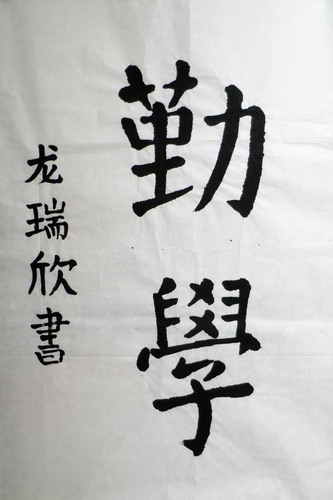 勤學
龙瑞欣書